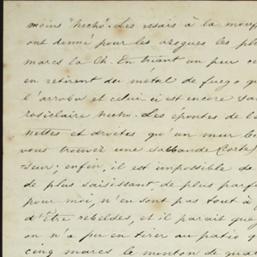 moins "hecho". Les essais à la mouf
ont donné pour les azogues les pl
marcs la Ch. En triant un peu ce
en retirent du metal de fuego q
l'arroba et celui ci est encore sa
rosiclaire hecho. Les épontes de l
nettes et droites qu'un mur b
vous trouver une salbande (Corte
Seur; enfin, il est impossible de
de plus saisissant, de plus parf
pour moi, n'en sont pas tout à
d'être rebeldes, et il parait que
on n'a pu en tirer au patio q
cinq marcs le monton de qua